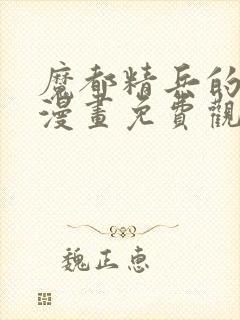 魔都精兵的
漫畫免費觀
魏正惠